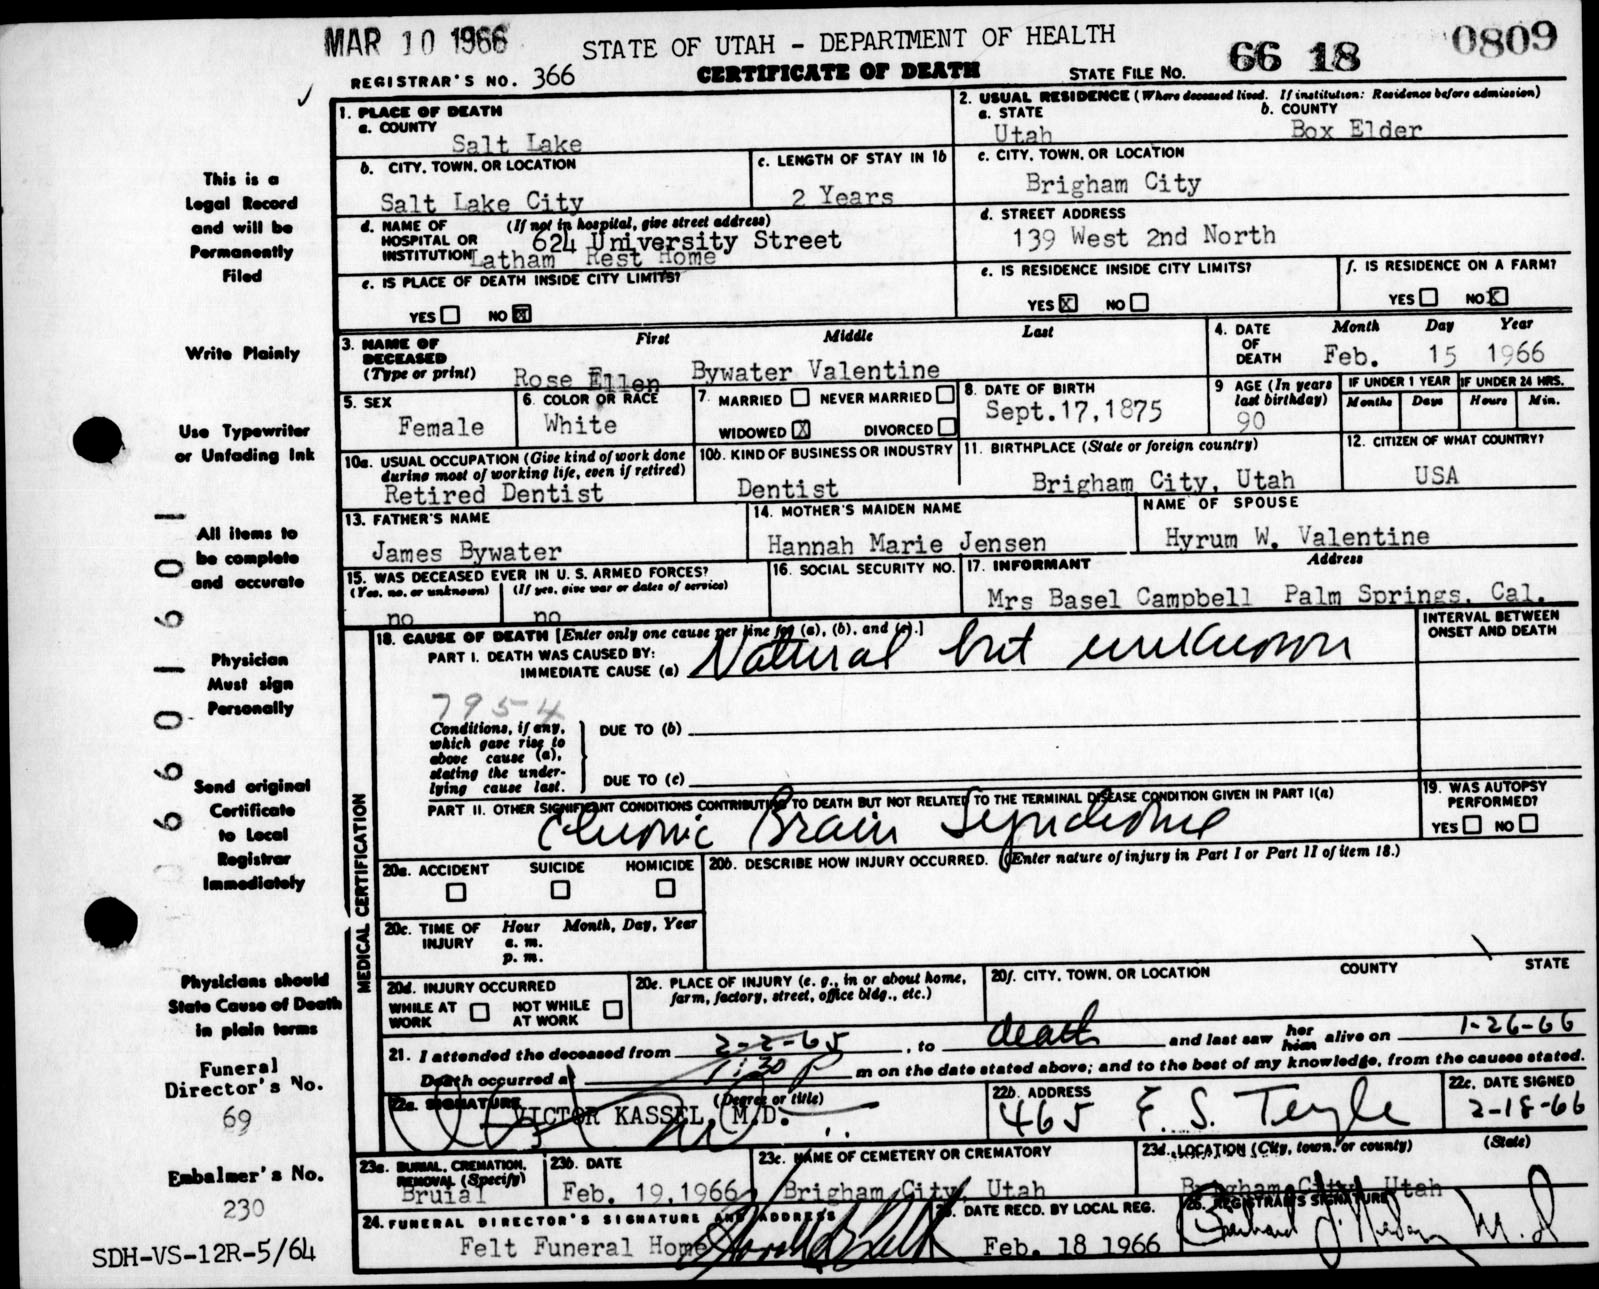 MAR 10 1966
STATE OF UTAH - DEPARTMENT OF HEALTH
66 18
0809
REGISTRAR'S NO. 366
CERTIFICATE OF DEATH
STATE FILE NO.
This is a
Legal Record
and will be
Permanently
Filed
Write Plainly
Use Typewriter
or Unfading Ink
All items to
be complete
and accurate
Physician
Must sign
Personally
Send original
Certificate
to Local
Registrar
Immediately
Physicians should
State Cause of Death
in plain terms
Funeral
Director's No.
69
Embalmer's No.
230
SDH-VS-12R-5/64
1. PLACE OF DEATH
a. COUNTY
Salt Lake
2. USUAL RESIDENCE (Where deceased lived. If institution: Residence before admission)
a. STATE
Utah
b. COUNTY
Box Elder
b. CITY, TOWN, OR LOCATION
Salt Lake City
c. LENGTH OF STAY IN 1b
2 Years
c. CITY, TOWN, OR LOCATION
Brigham City
d. NAME OF HOSPITAL OR INSTITUTION
(If not in hospital, give street address)
624 University Street
Latham Rest Home
d. STREET ADDRESS
139 West 2nd North
e. IS PLACE OF DEATH INSIDE CITY LIMITS?
YES NO X
e. IS RESIDENCE INSIDE CITY LIMITS?
YES X NO
f. IS RESIDENCE ON A FARM?
YES NO X
3. NAME OF DECEASED
(Type or print)
First Middle Last
Rose Ellen Bywater Valentine
4. DATE OF DEATH
Month Day Year
Feb. 15 1966
5. SEX
Female
6. COLOR OR RACE
White
7. MARRIED NEVER MARRIED
WIDOWED X DIVORCED
8. DATE OF BIRTH
Sept.17,1875
9 AGE (In years last birthday)
90
IF UNDER 1 YEAR
Months Days
IF UNDER 24 HRS.
Hours Min.
10a. USUAL OCCUPATION (Give kind of work done
during most of working life, even if retired)
Retired Dentist
10b. KIND OF BUSINESS OR INDUSTRY
Dentist
11. BIRTHPLACE (State or foreign country)
Brigham City, Utah
12. CITIZEN OF WHAT COUNTRY?
USA
13. FATHER'S NAME
James Bywater
14. MOTHER'S MAIDEN NAME
Hannah Marie Jensen
NAME OF SPOUSE
Hyrum W. Valentine
15. WAS DECEASED EVER IN U. S. ARMED FORCES?
(Yes, no, or unknown) (If yes, give war or dates of service)
no no
16. SOCIAL SECURITY NO.
17. INFORMANT Address
Mrs Basel Campbell Palm Springs, Cal.
MEDICAL CERTIFICATION
18. CAUSE OF DEATH [Enter only one cause per line for (a), (b), and (c).]
INTERVAL BETWEEN
ONSET AND DEATH
PART I. DEATH WAS CAUSED BY:
IMMEDIATE CAUSE (a) Natural but unknown
7954
Conditions, if any,
which gave rise to
above cause (a),
stating the under-
lying cause last.
DUE TO (b)
DUE TO (c)
PART II. OTHER SIGNIFICANT CONDITIONS CONTRIBUTING TO DEATH BUT NOT RELATED TO THE TERMINAL DISEASE CONDITION GIVEN IN PART I(a)
Chronic Brain Syndrome
19. WAS AUTOPSY
PERFORMED?
YES NO
20a. ACCIDENT SUICIDE HOMICIDE
20b. DESCRIBE HOW INJURY OCCURRED. (Enter nature of injury in Part I or Part II of item 18.)
20c. TIME OF INJURY
Hour Month, Day, Year
a. m.
p. m.
20d. INJURY OCCURRED
WHILE AT WORK NOT WHILE AT WORK
20e. PLACE OF INJURY (e. g., in or about home,
farm, factory, street, office bldg., etc.)
20f. CITY, TOWN, OR LOCATION COUNTY STATE
21. I attended the deceased from 2-2-65, to death and last saw her him alive on 1-26-66
Death occurred at 1:30 P m on the date stated above; and to the best of my knowledge, from the causes stated.
22a. SIGNATURE (Degree or title)
VICTOR KASSEL, M.D.
22b. ADDRESS
465
22c. DATE SIGNED
2-18-66
23a. BURIAL, CREMATION,
REMOVAL (Specify)
Bruial
23b. DATE
Feb. 19,1966
23c. NAME OF CEMETERY OR CREMATORY
Brigham City, Utah
23d. LOCATION (City, town, or county) (State)
Brigham City, Utah
24. FUNERAL DIRECTOR'S SIGNATURE AND ADDRESS
Felt Funeral Home
25. DATE RECD. BY LOCAL REG.
Feb. 18 1966
26. REGISTRAR'S SIGNATURE